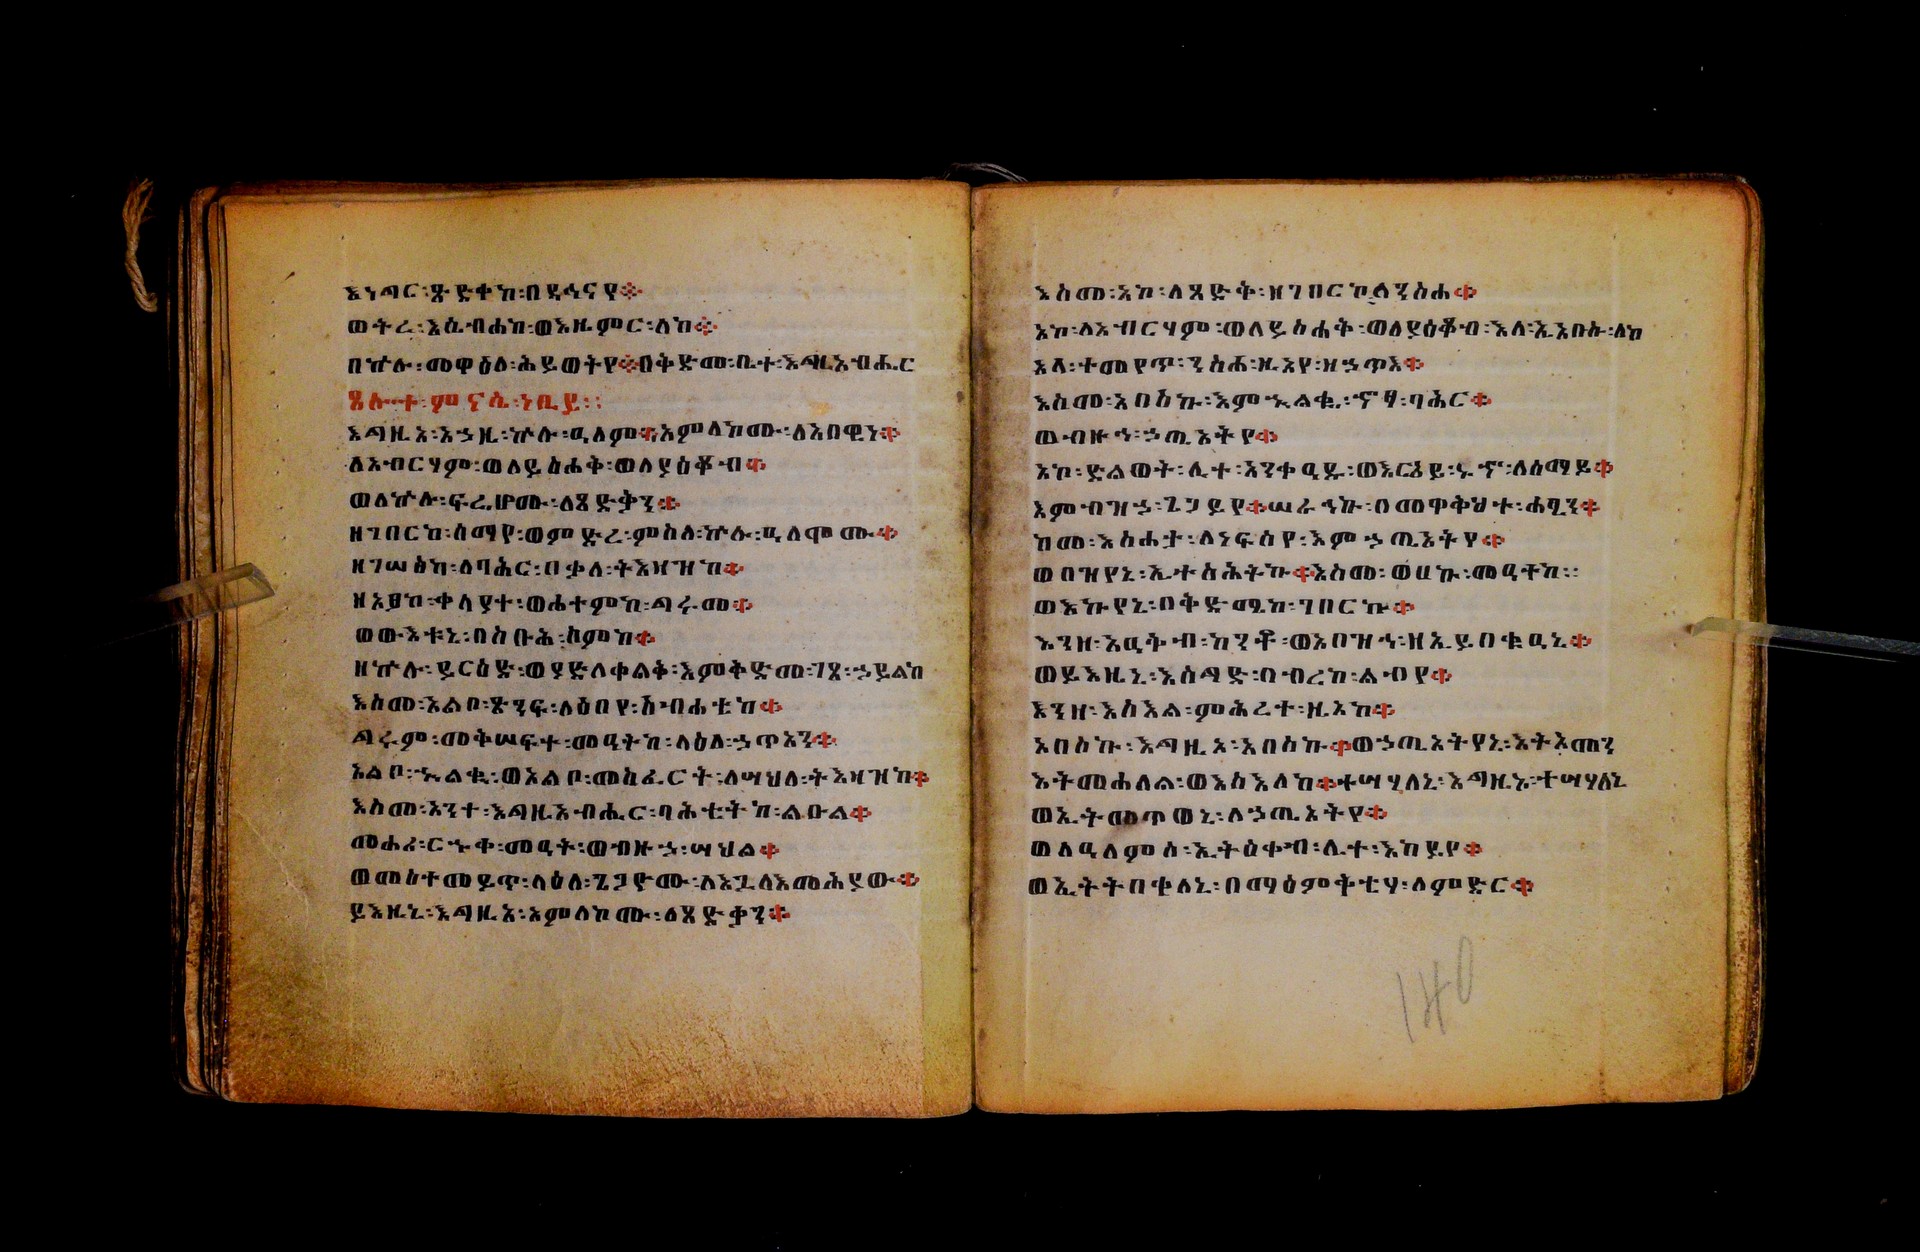 እነግር፡ጽድቀከ፡በዲኅናየ፨
ወትረ፡እሴብሐከ፡ወእዜምር፡ለከ፨
በኵሉ፡መዋዕለ፡ሕይወትየ፨በቅድመ፡ቤተ፡እግዚአብሔር
ጸሎተ፡ምናሴ፡ነቢይ፡፡
እግዚአ፡አኃዜ፡ኵሉ፡ዓለም፨አምላከሙ፡ለአበዊነ፨
ለአብርሃም፡ወለይስሐቅ፡ወለያዕቆብ፨
ወለኵሉ፡ፍሬሆሙ፡ለጻድቃን፨
ዘገበርከ፡ሰማየ፡ወምድረ፡ምስለ፡ኵሉ፡ዓለሞሙ፨
ዘገሠፅከ፡ለባሕር፡በቃለ፡ትእዛዝከ፨
ዘአፆከ፡ቀላያተ፡ወሐተምከ፡ግሩመ፨
ወውእቱኒ፡በስቡሕ፡ስምከ፨
ዘኵሉ፡ይርዕድ፡ወያድለቀልቅ፡እምቅድመ፡ገጸ፡ኃይልከ
እስመ፡አልቦ፡ጽንፍ፡ለዕበየ፡ስብሐቲከ፨
ግሩም፡መቅሠፍተ፡መዓትከ፡ላዕለ፡ኃጥአን፨
አልቦ፡ኍልቊ፡ወአልቦ፡መስፈርት፡ለሣህለ፡ትእዛዝከ፨
እስመ፡አንተ፡እግዚአብሔር፡ባሕቲትከ፡ልዑል፨
መሐሪ፡ርኁቀ፡መዓት፡ወብዙኃ፡ሣህል፨
ወመስተመይጥ፡ላዕለ፡ጌጋዮሙ፡ለእጓለእመሕያው፨
ይእዜኒ፡እግዚአ፡አምላኮሙ፡ለጻድቃን፨
እስመ፡አኮ፡ለጻድቅ፡ዘገበርኮ፡ለንስሐ፨
አኮ፡ለአብርሃም፡ወለይስሐቅ፡ወለያዕቆብ፡እለ፡ኢአበሱ፡ለከ
አላ፡ተመየጥ፡ንስሐ፡ዚአየ፡ዘኃጥእ፨
እስመ፡አበስኩ፡እምኁልቁ፡ኆፃ፡ባሕር፨
ወብዙኅ፡ኃጢአትየ፨
አኮ፡ድልወት፡ሊተ፡አንቀዓዱ፡ወእርአይ፡ኑኆ፡ለሰማይ፨
እምብዝኃ፡ጌጋይየ፨ሠራኅኩ፡በመዋቅህተ፡ሐፂን፨
ከመ፡አስሐታ፡ለነፍስየ፡እም፡ኃጢአትየ፨
ወበዝየኒ፡ኢተስሕትኩ፨እስመ፡ወሀኩ፡መዓተከ፡፡
ወእኩየኒ፡በቅድሜከ፡ገበርኩ፨
እንዘ፡አዓትብ፡ከንቶ፡ወአበዝኅ፡ዘኢይበቁዓኒ፨
ወይእዜኒ፡እሰግድ፡በብረከ፡ልብየ፨
እንዘ፡እስእል፡ምሕረተ፡ዚአከ፨
አበስኩ፡እግዚአ፡አበስኩ፨ወኃጢአትየኒ፡እትአመን
እትመሐለል፡ወእስእለከ፨ተሣሃለኒ፡እግዚኡ፡ተሣሃለኒ
ወኢትመጥወኒ፡ለኃጢአትየ፨
ወለዓለም፡ሰ፡ኢትዕቀብ፡ሊተ፡እከይየ፨
ወኢትትበቀለኒ፡በማዕምቅቲሃ፡ለምድር፨
140